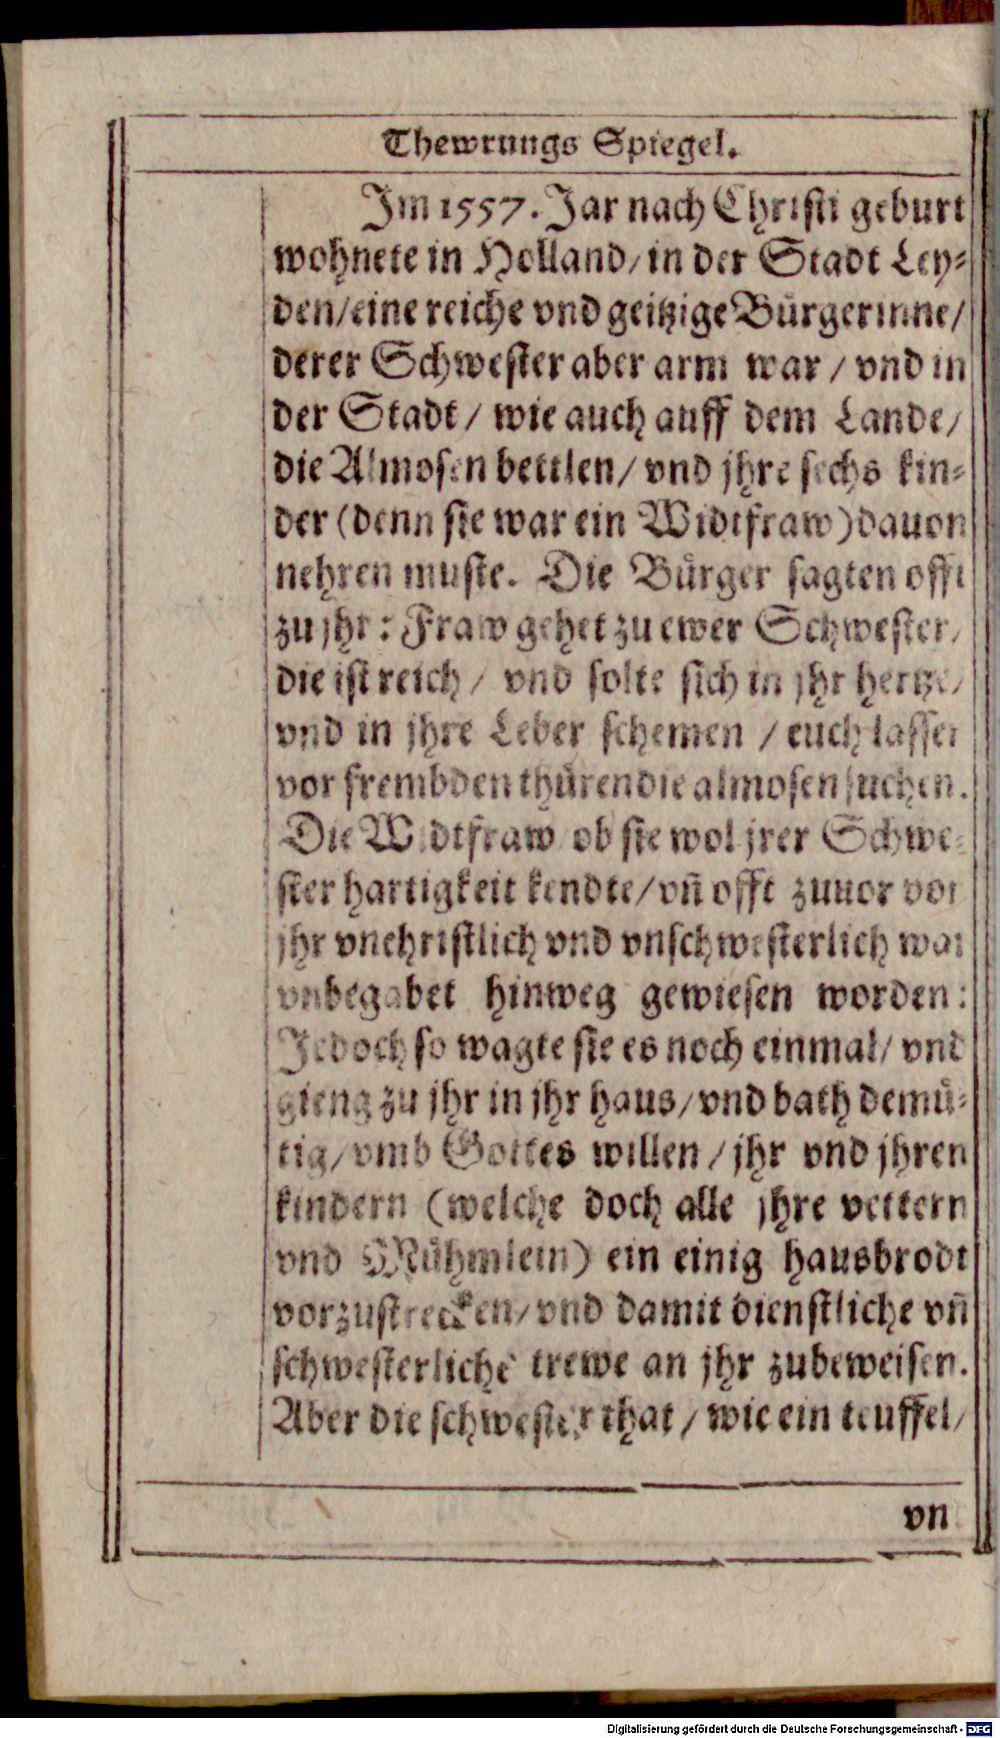 Thewrungs Spiegel.
Im 1557. Jar nach Christi geburt
wohnete in Holland/ in der Stadt Ley⸗
den/ eine reiche vnd geitzige Bürgerinne/
derer Schwester aber arm war / vnd in
der Stadt / wie auch auff dem Lande/
die Almosen bettlen/ vnd jhre sechs kin⸗
der (denn sie war ein Widtfraw) dauon
nehren muste. Die Bürger sagten offt
zu jhr: Fraw gehet zu ewer Schwester/
die ist reich / vnd solte sich in jhr hertze/
vnd in jhre Leber schemen / euch lassen
vor frembden thüren die almosen suchen.
Die Widtfraw ob sie wol jrer Schwe⸗
ster hartigkeit kendte/ vn̄ offt zuuor von
jhr vnchristlich vnd vnschwesterlich war
vnbegabet hinweg gewiesen worden:
Jedoch so wagte sie es noch einmal/ vnd
gieng zu jhr in jhr haus/ vnd bath demü⸗
tig/ vmb Gottes willen / jhr vnd jhren
kindern (welche doch alle jhre vettern
vnd Mühmlein) ein einig hausbrodt
vorzustrecken/ vnd damit dienstliche vn̄
schwesterliche trewe an jhr zubeweisen.
Aber die schwester that / wie ein teuffel/
vn
Digitalisierung gefördert durch die Deutsche Forschungsgemeinschaft - DFG